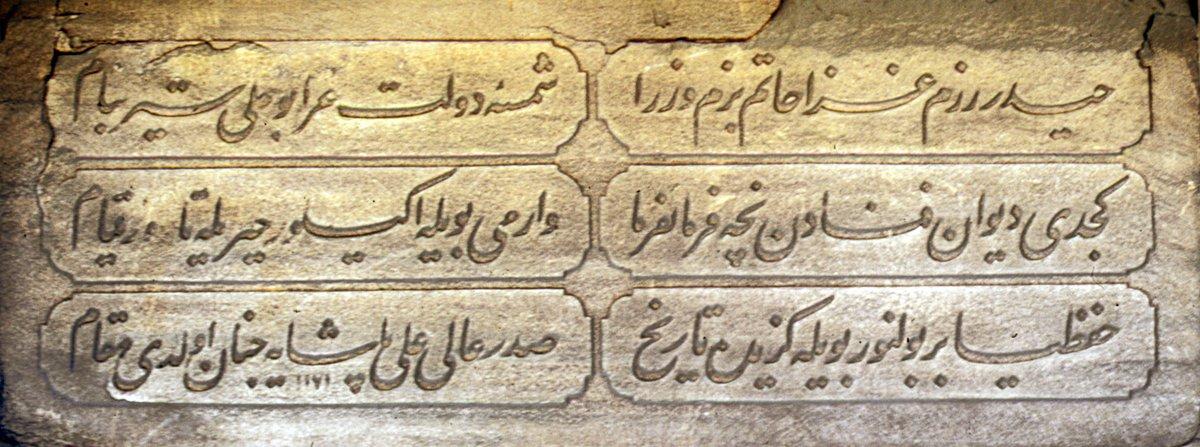 حیدر رزم غزا حاتم بزم وزرا
شمسهٔ دولت غرا بو علی سیر بنام
کچدی دیوان فنادن نچه فرمانفرما
وارمی بویله اکیلور خیر یله تا روز قیام
حفظیا بر بولنور بویله کزیده تاریخ
صدر عالی علی پاشایه جنان اولدی مقام
۱۱۷۱